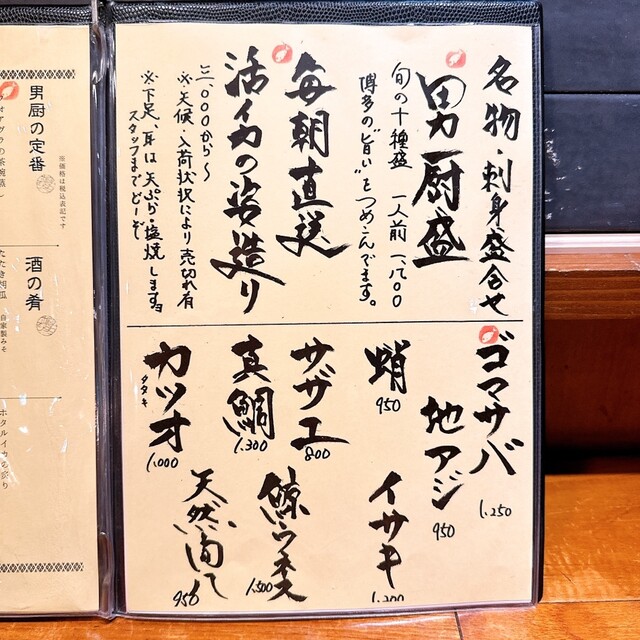 名物・刺身盛合せ
男厨盛
旬の十種盛 一人前 一、八〇〇
博多の"旨い"をつめこんでます。
毎朝直送
活イカの姿造り
三、〇〇〇から〜
※天候・入荷状況により売切れ有
※下足、耳は天ぷら・塩焼します
スタッフまでどーぞ
ゴマサバ
1,250
地アジ
950
蛸
950
イサキ
1,200
サザエ
800
鯨ウネス
1,500
真鯛
1,300
天然
950
カツオ
タタキ
1,000
男厨の定番
※価格は税込表記です
フォアグラの茶碗蒸し
酒の肴
たたき胡瓜 自家製みそ
ホタルイカの沖漬り